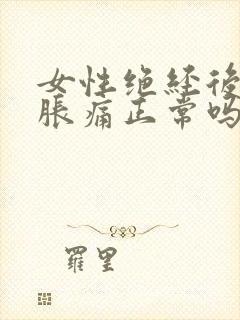 女性绝经後
脹痛正常吗
羅里